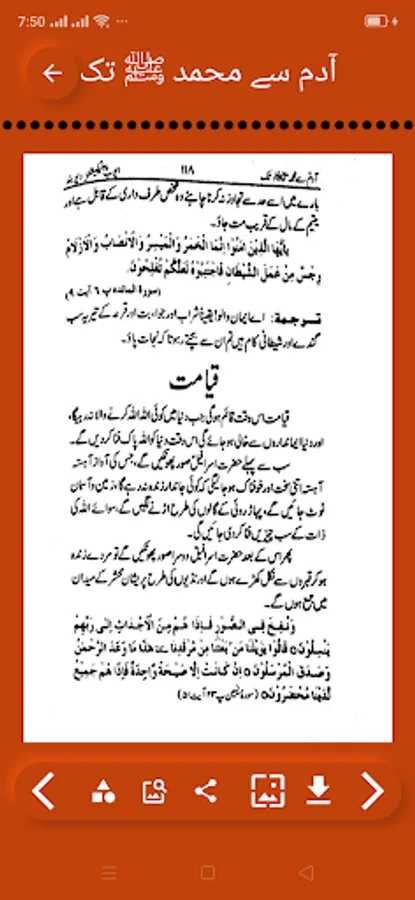 7:50
آدم سے محمد ﷺ تک
۱۱۸
بارے میں اسے حد سے تجاوز نہ کرنا چاہئے وہ شخص طرف داری کے قابل ہے اور
یتیم کے مال کے قریب مت جاؤ۔
یٰٓاَیُّهَا الَّذِیْنَ اٰمَنُوْا اِنَّمَا الْخَمْرُ وَالْمَیْسِرُ وَالْاَنْصَابُ وَالْاَزْلَامُ
رِجْسٌ مِنْ عَمَلِ الشَّیْطَانِ فَاجْتَنِبُوْهُ لَعَلَّكُمْ تُفْلِحُوْنَ۔
(سورۃ المائدہ پ ۶ آیت ۹)
ترجمہ: اے ایمان والو یقیناً شراب اور جوا، بت اور قرعہ کے تیر یہ سب
گندے اور شیطانی کام ہیں تم ان سے بچتے رہو تاکہ نجات پاؤ۔
قیامت
قیامت اس وقت قائم ہوگی جب دنیا میں کوئی اللہ اللہ کرنے والا نہ رہیگا،
اور دنیا ایمانداروں سے خالی ہو جائے گی اس وقت دنیا کو اللہ پاک فنا کر دیں گے۔
سب سے پہلے حضرت اسرافیل صور پھونکیں گے، جس کی آواز آہستہ
آہستہ اتنی سخت اور خوفناک ہو جائیگی کہ کوئی جاندار زندہ نہ رہے گا، زمین و آسمان
ٹوٹ جائیں گے، پہاڑ روئی کے گالوں کی طرح اڑنے لگیں گے، سوائے اللہ کی
ذات کے سب چیزیں فنا کر دی جائیں گی۔
پھر اس کے بعد حضرت اسرافیل دوسرا صور پھونکیں گے تو مردے زندہ
ہو کر قبروں سے نکل کھڑے ہوں گے اور ٹڈیوں کی طرح پریشان محشر کے میدان
میں جمع ہوں گے۔
وَنُفِخَ فِی الصُّوْرِ فَاِذَا هُمْ مِنَ الْاَجْدَاثِ اِلٰی رَبِّهِمْ
یَنْسِلُوْنَ۝ قَالُوْا یٰوَیْلَنَا مَنْ بَعَثَنَا مِنْ مَرْقَدِنَا هٰذَا مَا وَعَدَ الرَّحْمٰنُ
وَصَدَقَ الْمُرْسَلُوْنَ۝ اِنْ كَانَتْ اِلَّا صَیْحَةً وَاحِدَةً فَاِذَا هُمْ جَمِیْعٌ
لَدَیْنَا مُحْضَرُوْنَ۝ (سورۃ یٰسٓ پ ۲۳ آیت ۵۱)